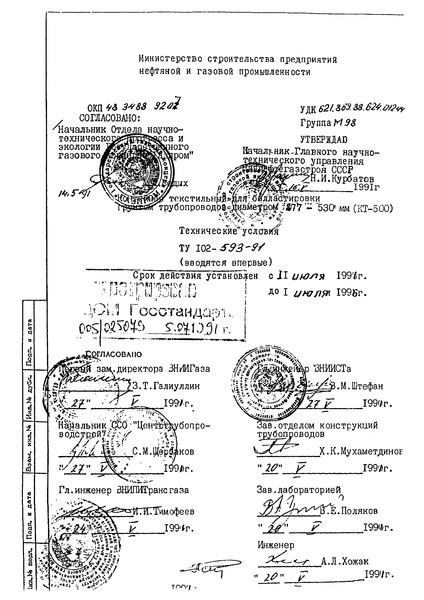 Министерство строительства предприятий
нефтяной и газовой промышленности
ОКП 48 3488 9207
УДК 621.869.88.624.012
СОГЛАСОВАНО:
Группа М98
Начальник Отдела научно-
технического и
экологии
газового "
14.5.91
УТВЕРЖДАЮ
Начальник Главного научно-
технического управления
СССР
Н.И.Курбатов
1991г
текстильный для балластировки
грунтом трубопроводов диаметром 377 - 530 мм (КТ-500)
Технические условия
ТУ 102-593-91
(вводятся впервые)
Срок действия установлен с 11 июля 1991г.
до 1 июля 1996г.
Зарегистрирован
ЦСМ Госстандарта
005/025079 5.07.1991г.
СОГЛАСОВАНО
Первый зам.директора ВНИИГаза
З.Т.Галиуллин
"27" V 1991г.
Начальник ССО "Центртрубопро-
водстрой"
С.М.Щербаков
"27" V 1991г.
Гл.инженер ВНИПИтрансгаза
И.И.Тимофеев
V 1991г.
Гл.инженер ВНИИСТа
В.М.Штефан
27 V 1991г.
Зав.отделом конструкций
трубопроводов
Х.К.Мухаметдинов
"20" V 1991г.
Зав.лабораторией
В.Е.Поляков
"20" V 1991г.
Инженер
А.Л.Хожак
"20" V 1991г.
Подп. и дата
Инв.№ дубл.
Взам. инв.№
Подп. и дата
Инв.№ подл.